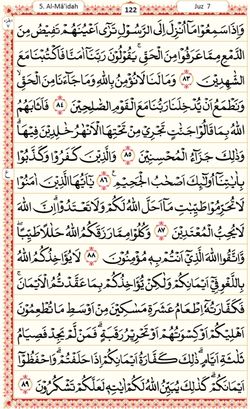 5. Al-Mâ'idah 122 Juz 7
وَاِذَا سَمِعُوْا مَآ اُنْزِلَ اِلَى الرَّسُوْلِ تَرٰٓى اَعْيُنَهُمْ تَفِيْضُ مِنَ
الدَّمْعِ مِمَّا عَرَفُوْا مِنَ الْحَقِّۚ يَقُوْلُوْنَ رَبَّنَآ اٰمَنَّا فَاكْتُبْنَا مَعَ
الشّٰهِدِيْنَ ٨٣ وَمَا لَنَا لَا نُؤْمِنُ بِاللّٰهِ وَمَا جَاۤءَنَا مِنَ الْحَقِّۙ
وَنَطْمَعُ اَنْ يُّدْخِلَنَا رَبُّنَا مَعَ الْقَوْمِ الصّٰلِحِيْنَ ٨٤ فَاَثَابَهُمُ
اللّٰهُ بِمَا قَالُوْا جَنّٰتٍ تَجْرِيْ مِنْ تَحْتِهَا الْاَنْهٰرُ خٰلِدِيْنَ فِيْهَاۗ
وَذٰلِكَ جَزَاۤءُ الْمُحْسِنِيْنَ ٨٥ وَالَّذِيْنَ كَفَرُوْا وَكَذَّبُوْا
بِاٰيٰتِنَآ اُولٰۤىِٕكَ اَصْحٰبُ الْجَحِيْمِ ٨٦ يٰٓاَيُّهَا الَّذِيْنَ اٰمَنُوْا
لَا تُحَرِّمُوْا طَيِّبٰتِ مَآ اَحَلَّ اللّٰهُ لَكُمْ وَلَا تَعْتَدُوْاۗ اِنَّ اللّٰهَ
لَا يُحِبُّ الْمُعْتَدِيْنَ ٨٧ وَكُلُوْا مِمَّا رَزَقَكُمُ اللّٰهُ حَلٰلًا طَيِّبًاۖ
وَّاتَّقُوا اللّٰهَ الَّذِيْٓ اَنْتُمْ بِهٖ مُؤْمِنُوْنَ ٨٨ لَا يُؤَاخِذُكُمُ اللّٰهُ
بِاللَّغْوِ فِيْٓ اَيْمَانِكُمْ وَلٰكِنْ يُّؤَاخِذُكُمْ بِمَا عَقَّدْتُّمُ الْاَيْمَانَۚ
فَكَفَّارَتُهٗٓ اِطْعَامُ عَشَرَةِ مَسٰكِيْنَ مِنْ اَوْسَطِ مَا تُطْعِمُوْنَ
اَهْلِيْكُمْ اَوْ كِسْوَتُهُمْ اَوْ تَحْرِيْرُ رَقَبَةٍۗ فَمَنْ لَّمْ يَجِدْ فَصِيَامُ
ثَلٰثَةِ اَيَّامٍۗ ذٰلِكَ كَفَّارَةُ اَيْمَانِكُمْ اِذَا حَلَفْتُمْۗ وَاحْفَظُوْٓا
اَيْمَانَكُمْۗ كَذٰلِكَ يُبَيِّنُ اللّٰهُ لَكُمْ اٰيٰتِهٖ لَعَلَّكُمْ تَشْكُرُوْنَ ٨٩